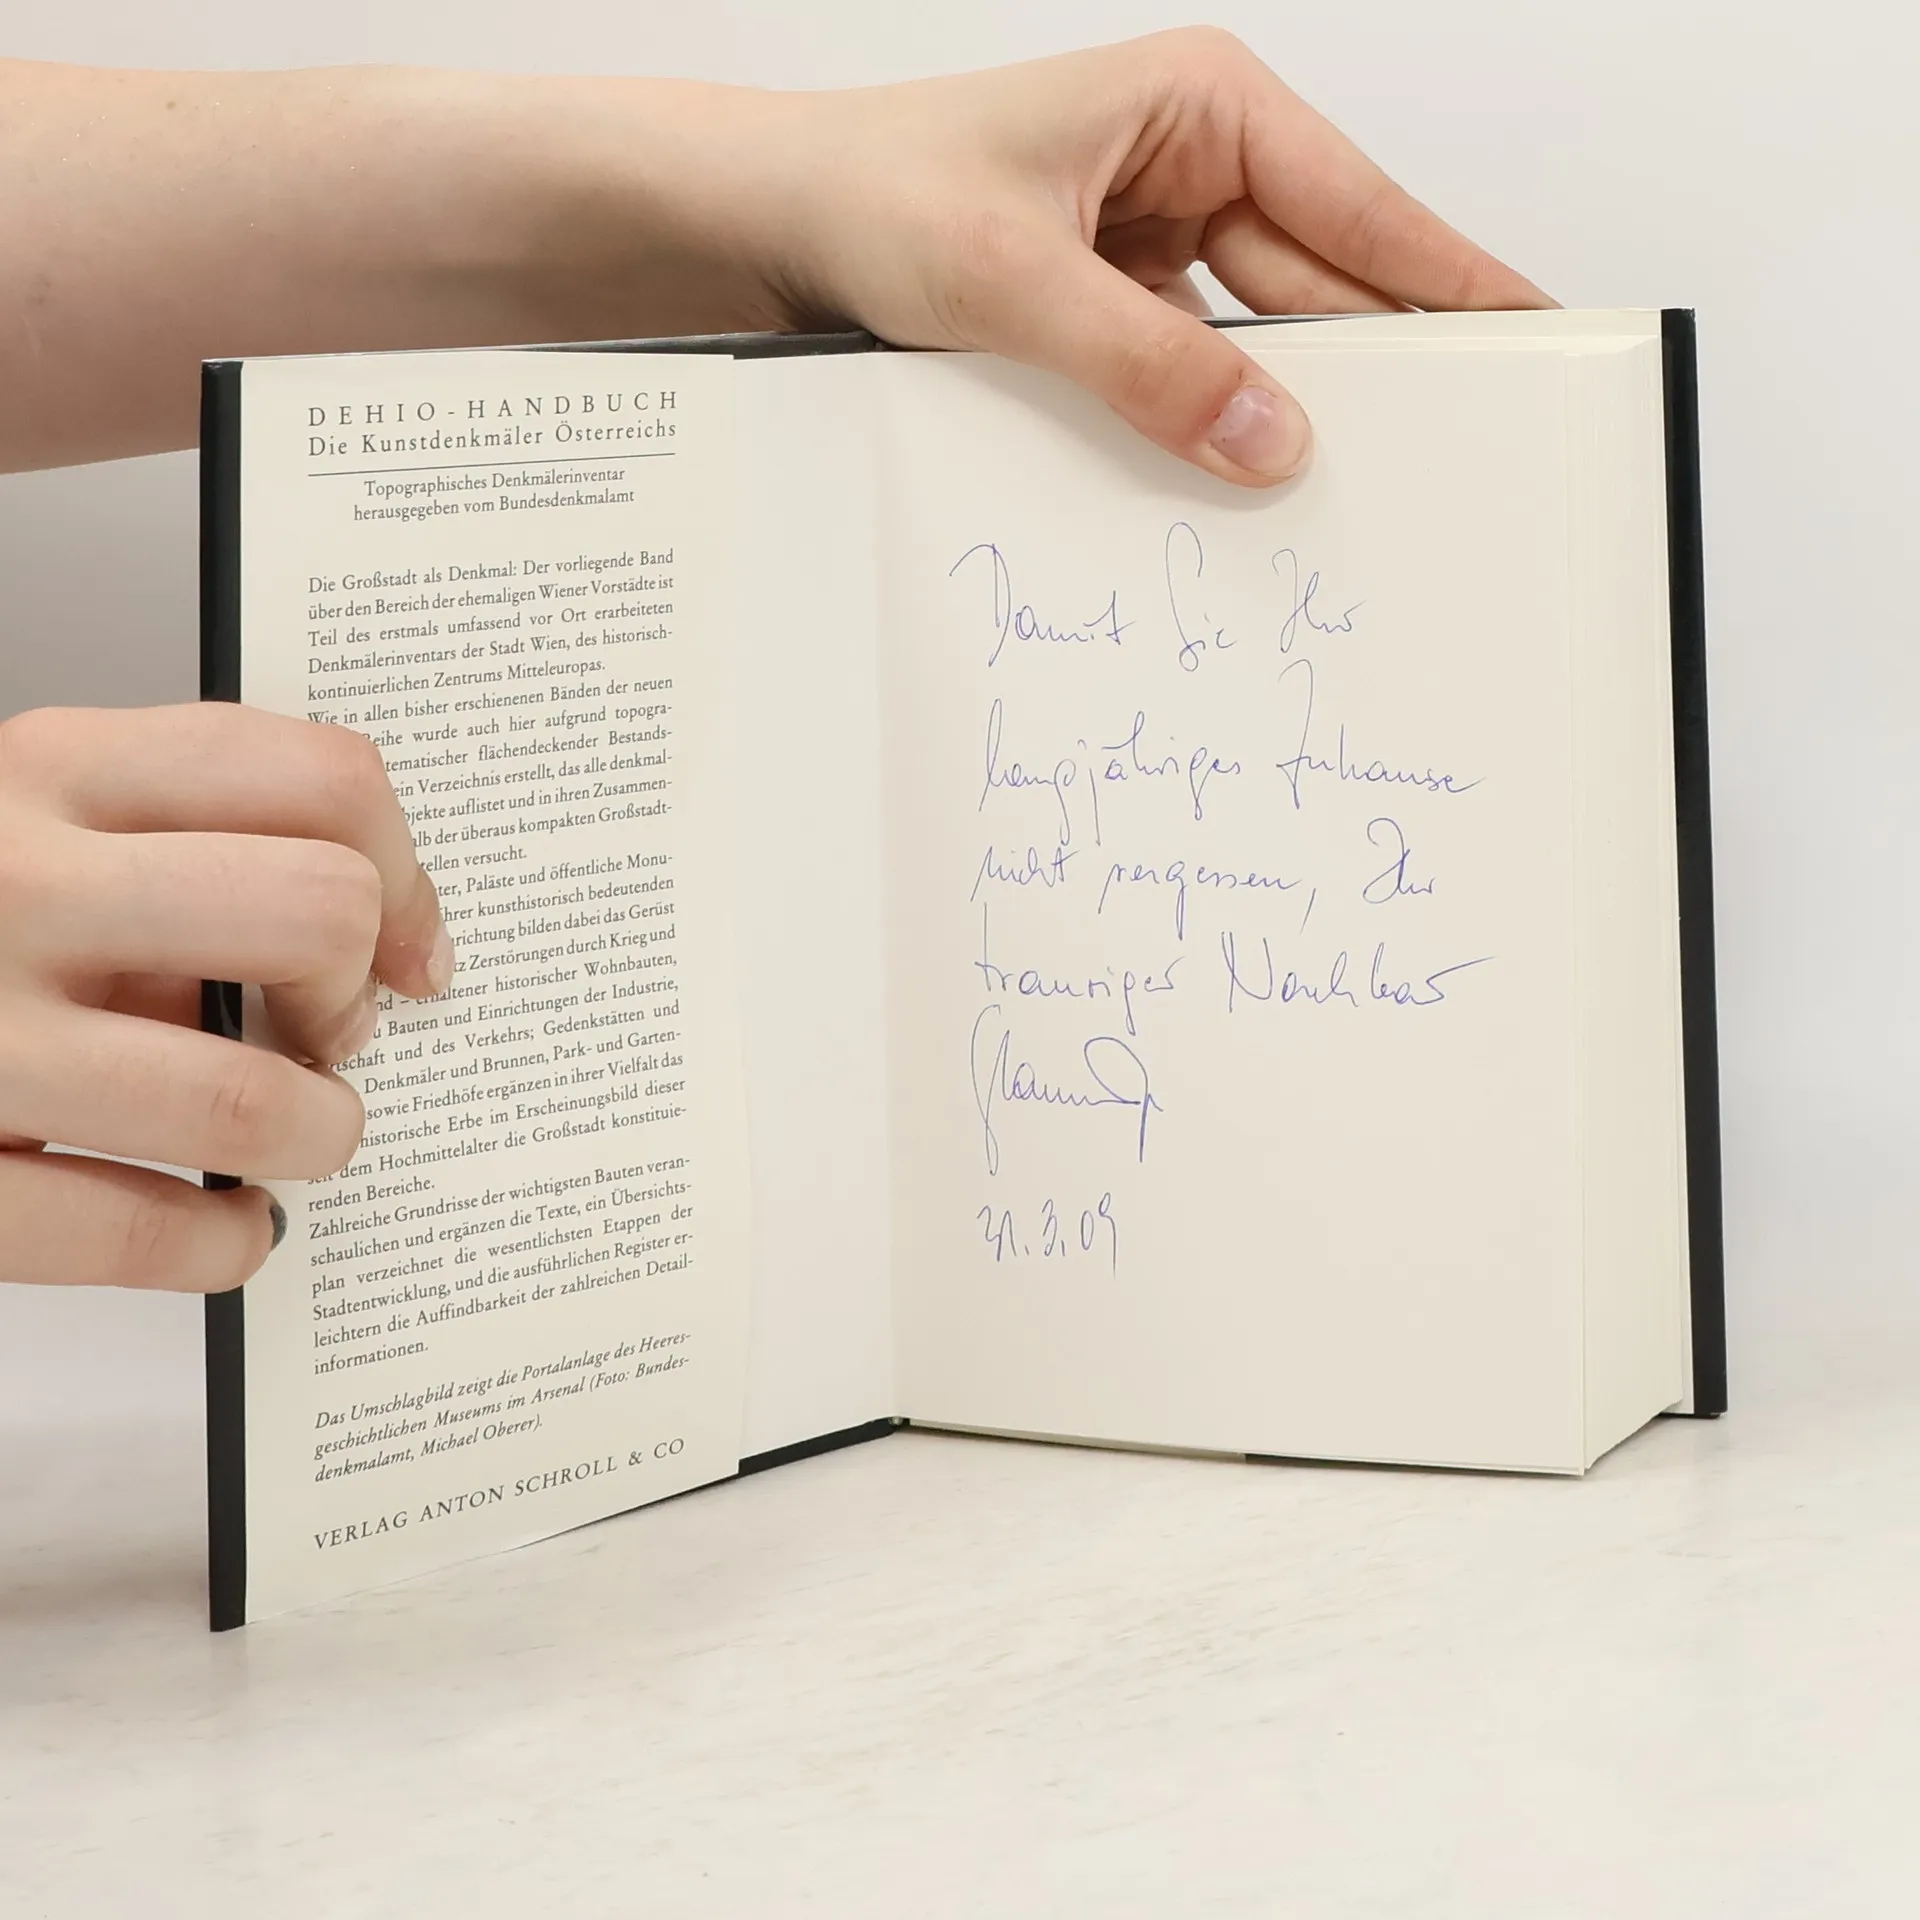 DEHIO-HANDBUCH
Die Kunstdenkmäler Österreichs
Topographisches Denkmälerinventar
herausgegeben vom Bundesdenkmalamt
Die Großstadt als Denkmal: Der vorliegende Band
über den Bereich der ehemaligen Wiener Vorstädte ist
Teil des erstmals umfassend vor Ort erarbeiteten
Denkmälerinventars der Stadt Wien, des historisch-
kontinuierlichen Zentrums Mitteleuropas.
Wie in allen bisher erschienenen Bänden der neuen
Reihe wurde auch hier aufgrund topogra-
tematischer flächendeckender Bestands-
ein Verzeichnis erstellt, das alle denkmal-
bjekte auflistet und in ihren Zusammen-
alb der überaus kompakten Großstadt-
tellen versucht.
ter, Paläste und öffentliche Monu-
ihrer kunsthistorisch bedeutenden
richtung bilden dabei das Gerüst
tz Zerstörungen durch Krieg und
nd – erhaltener historischer Wohnbauten,
u Bauten und Einrichtungen der Industrie,
rtschaft und des Verkehrs; Gedenkstätten und
Denkmäler und Brunnen, Park- und Garten-
sowie Friedhöfe ergänzen in ihrer Vielfalt das
historische Erbe im Erscheinungsbild dieser
seit dem Hochmittelalter die Großstadt konstituie-
renden Bereiche.
Zahlreiche Grundrisse der wichtigsten Bauten veran-
schaulichen und ergänzen die Texte, ein Übersichts-
plan verzeichnet die wesentlichsten Etappen der
Stadtentwicklung, und die ausführlichen Register er-
leichtern die Auffindbarkeit der zahlreichen Detail-
informationen.
Das Umschlagbild zeigt die Portalanlage des Heeres-
geschichtlichen Museums im Arsenal (Foto: Bundes-
denkmalamt, Michael Oberer).
VERLAG ANTON SCHROLL & CO
Damit Sie Ihr
langjähriges Zuhause
nicht vergessen, Ihr
trauriger Nachbar
31.3.09